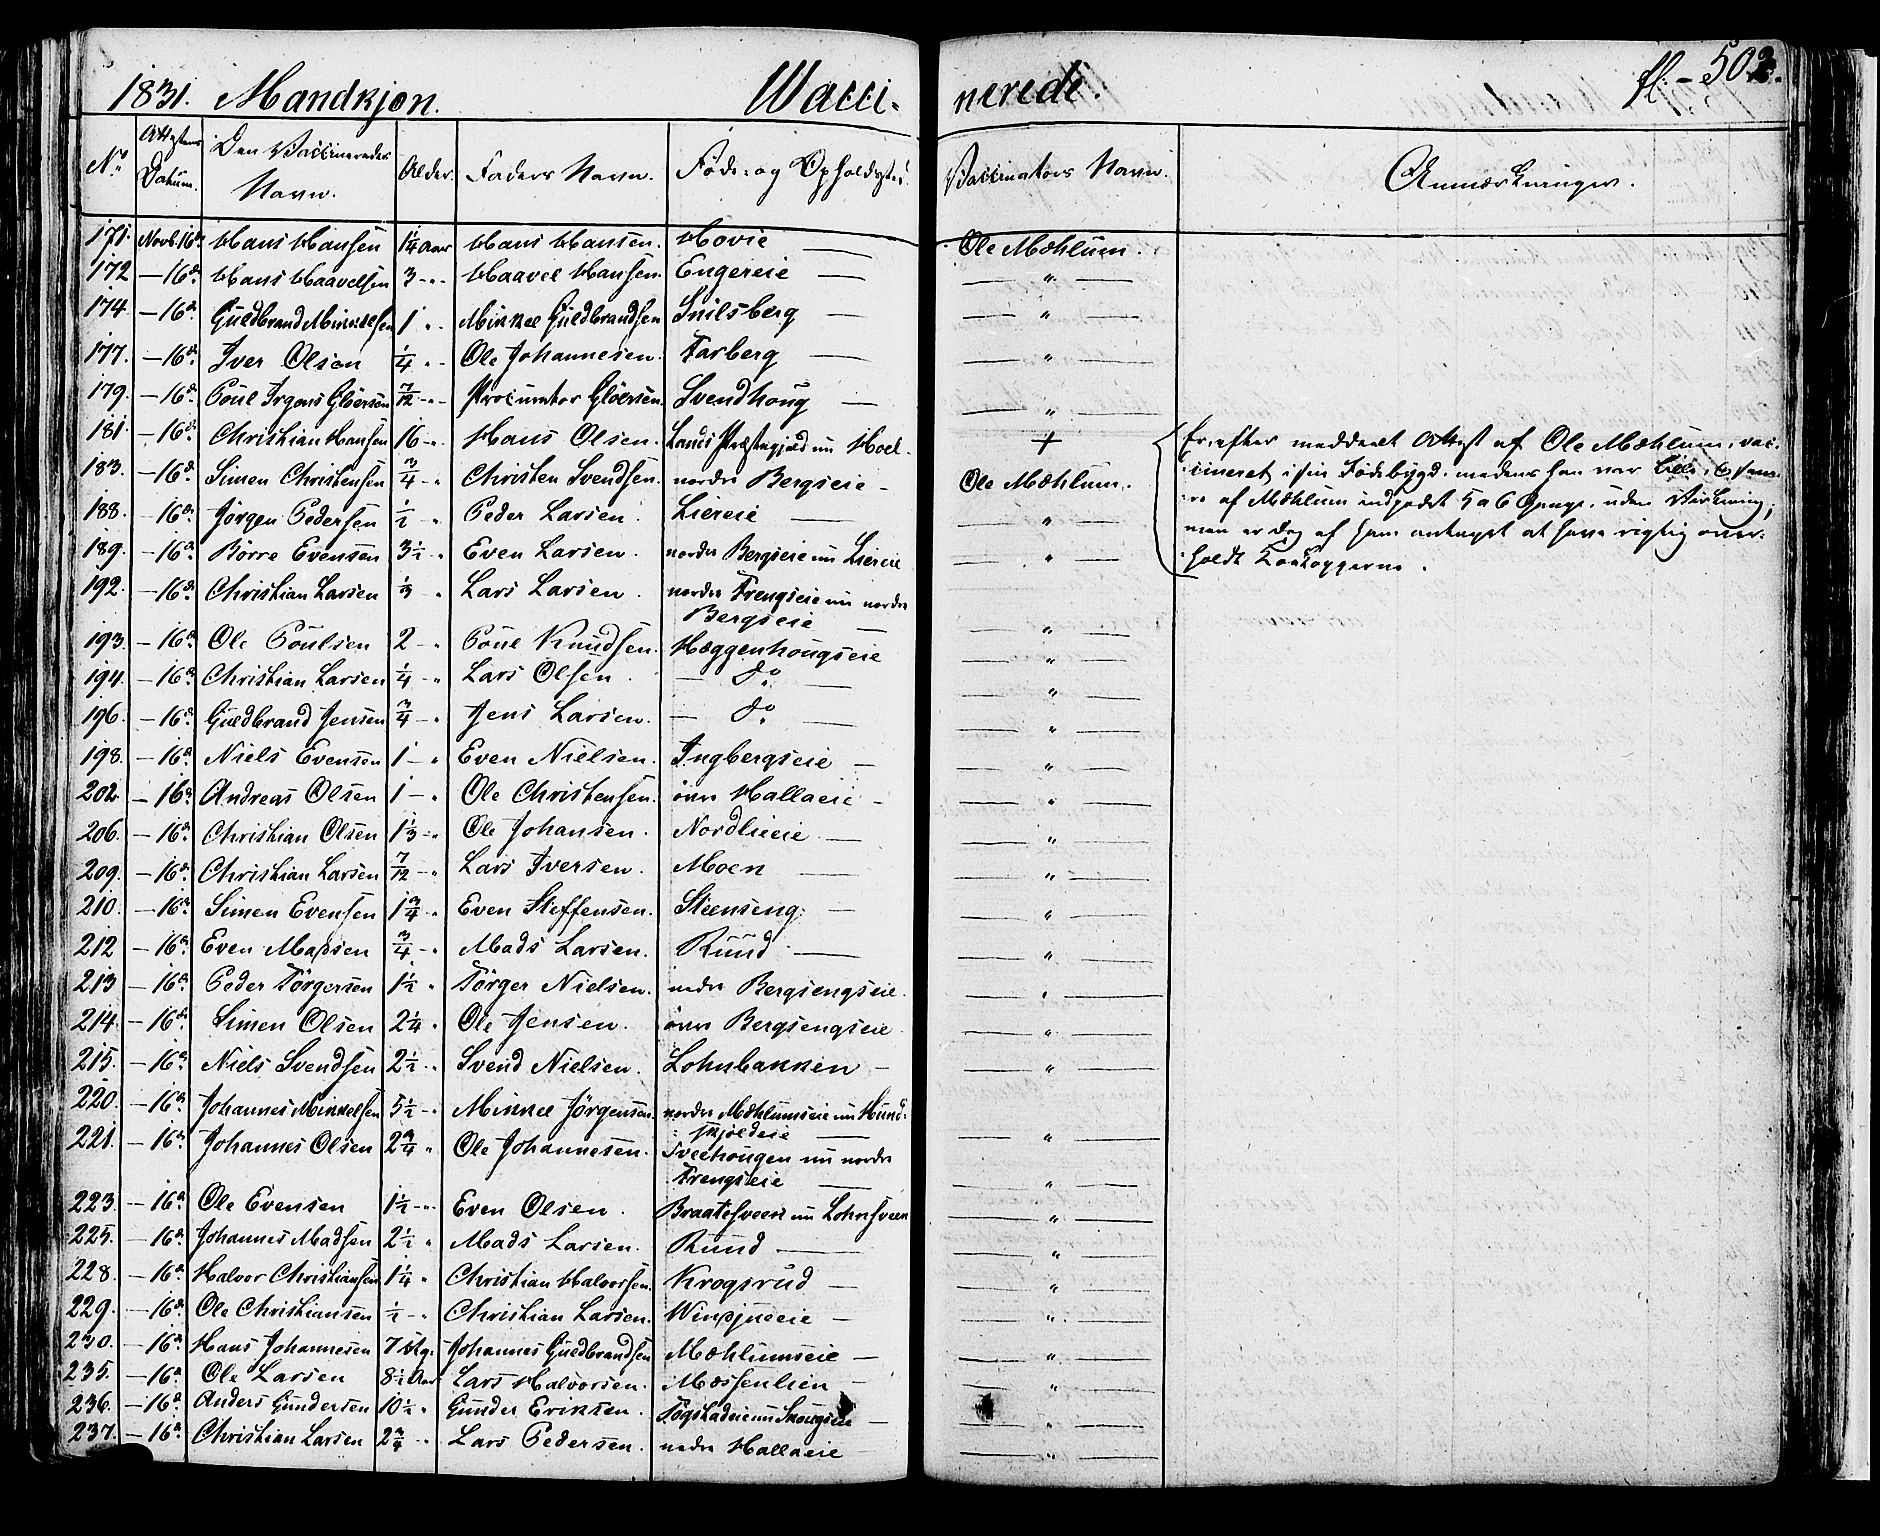 1831. Mandkjøn. Vacci- nerede. fl. - 502.
No Attestens Datum. Den Vaccineredes Navn. Alder. Faders Navn. Føde- og Opholdssted. Vaccinators Navn. Anmærkninger.
171. Novb. 16de Hans Hansen 1¼ Aar Hans Hansen. Hovie — Ole Mæhlum.
172 — 16d. Hans Haavelsen 3 -"- Haavel Hansen. Engereie — — " —
174. — 16d. Guldbrand Mikkelsen 1 " - Mikkel Guldbrandsen Snilsberg — — " —
177. — 16d. Iver Olsen ¼ " - Ole Johannesen. Farberg — — " —
179. — 16d. Poul Irgens Gløersen 7/12 -"- Procurator Gløersen. Svendhoug — — " —
181. — 16d. Christian Hansen 16 -"- Hans Olsen. Lands Præstegjeld nu Hoel - + Er, efter meddeelt Attest af Ole Mæhlum, vac-
183. — 16d. Simen Christensen ¾ - " Christen Svendsen. nordre Bergseie - Ole Mæhlum. cineret i sin Fødebygd, medens han var lille, & sene-
188. — 16d. Jørgen Pedersen ½ " Peder Larsen. Liereie — — " — re af Mæhlum indpodet 5 a 6 Gange, uden Virkning;
189. — 16d. Børre Evensen 3½ - " Even Larsen. nordre Bergseie nu Liereie — " — men er dog af ham antaget at have rigtig over-
192. — 16d. Christian Larsen ⅓ " Lars Larsen. nordre Frengseie nu nordre holdt Koekopperne.
Bergseie — — " —
193. — 16d. Ole Poulsen 2 - " Poul Knudsen. Hæggenhougseie — " —
194. — 16d. Christian Larsen ¼ - " Lars Olsen. — do — — " —
196. — 16d. Guldbrand Jensen ¾ - " Jens Larsen. — do — — " —
198. — 16d. Niels Evensen 1 - " Even Nielsen. Ingbergseie — — " —
202 — 16d. Andreas Olsen 1 - " Ole Christensen. øvre Hallaeie - — " —
206. — 16d. Christian Olsen 1⅓ -" Ole Johansen. Nordlieeie — — " —
209. — 16d. Christian Larsen 7/12 -" Lars Iversen. Moen — — " —
210. — 16d. Simen Evensen 1¾ - " Even Steffensen. Steenseng. — — " —
212 — 16d. Even Madsen ¾ - " Mads Larsen. Ruud — — " —
213 — 16d. Peder Tørgersen 1½ " Tørger Nielsen. nedre Bergsengseie. — " —
214. — 16d. Simen Olsen 2¼ " Ole Jensen. øvre Bergsengseie. — " —
215. — 16d. Niels Svendsen 2½ -" Svend Nielsen. Lohnbakken — — " —
220. — 16d. Johannes Mikkelsen 5½ -" Mikkel Jørgensen. nordre Mæhlumseie nu Hund-
skjoldeie — — " —
221. — 16d. Johannes Olsen 2¾ " Ole Johannesen. Tveehougen nu nordre
Frengseie — — " —
223. — 16d. Ole Evensen 1½ -" Even Olsen. Braatesveen nu Lohnsveen — " —
225. — 16d. Johannes Madsen 2½ " Mads Larsen. Ruud — — " —
228. — 16d. Halvor Christiansen 1¼ " Christian Halvorsen. Krogsrud — — " —
229. — 16d. Ole Christiansen ½ - " Christian Larsen. — — " —
230. — 16d. Hans Johannesen 7 Uger. Johannes Guldbrandsen Mæhlumseie — — " —
235. — 16d. Ole Larsen 8½ Aar Lars Halvorsen. Mæssenlien - — " —
236. — 16d. Anders Gundersen 10½ " Gunder Eriksen. nu Skougseie — — " —
237. — 16d. Christian Larsen 2¾ -" Lars Pedersen. nedre Hallaeie — — " —